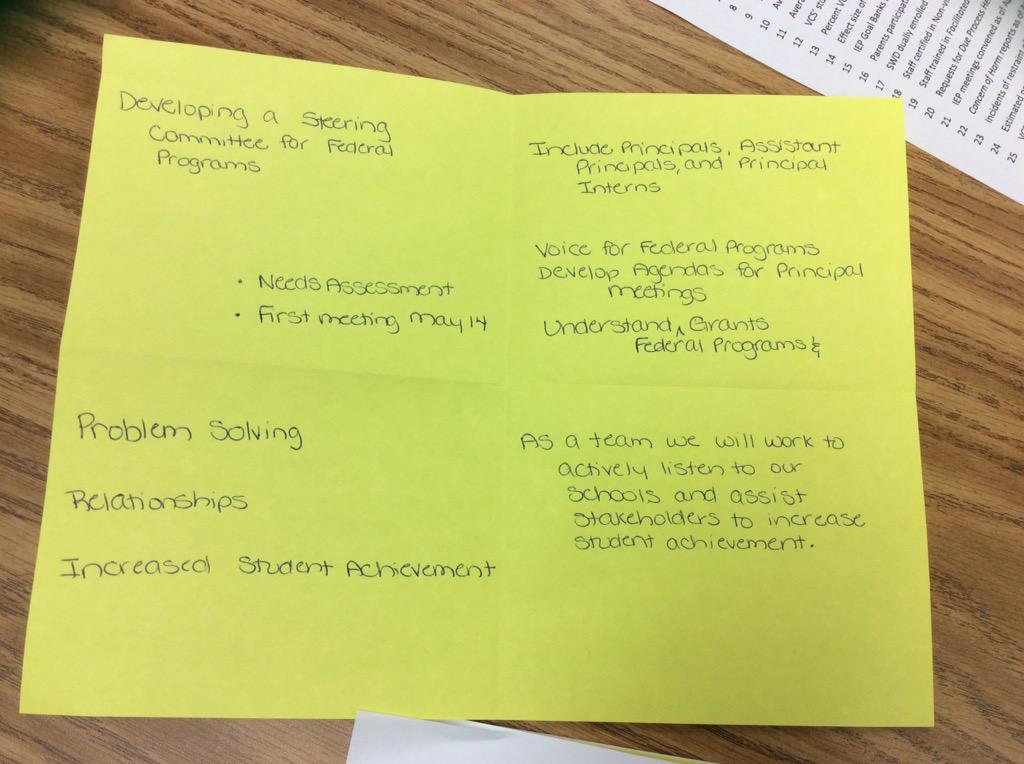 Developing a Steering
Committee for Federal
Programs
• Needs Assessment
• First meeting May 14
Include Principals, Assistant
Principals, and Principal
Interns
Voice for Federal Programs
Develop Agendas for Principal
meetings
Understand ^ Grants
Federal Programs &
Problem Solving
Relationships
Increased Student Achievement
As a team we will work to
actively listen to our
schools and assist
stakeholders to increase
student achievement.
8
9
10 Av
11 Aver
12 VCS' stu
13 Percent V
14 Effect size of
15 IEP Goal Banks
16 Parents participat
17 SWD dually enrolled
18 Staff certified in Non-vi
19 Staff trained in Facilitated
20 Requests for Due Process He
21 IEP meetings convened as of
22 Concern of Harm reports as o
23 Incidents of restraint
24 Estimated
25